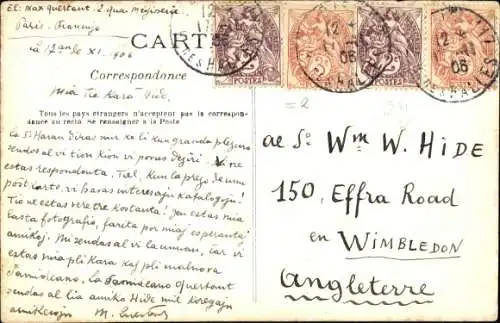 El: Max Quertant. 2 qua mégisserie.
Paris. Francujo.
la 12an de XI. 1906
CARTE
Correspondance
Mia tre Kara Hide,
Tous les pays étrangers n'acceptent pas la correspon-
dance au recto. Se renseigner à la Poste.
La So Haran diras sur xe li kun granda plezuro
sendos al vi tion kion vi povus deziri. Vi ne
estas respondonta. Tal, kun la prezo de unu
post karto, vi havas interesajn katalogojn!
Tio ne estas vere tre kostanta! Jen estas mia
lasta fotografio, farita por miaj esperantaj
amikoj. Mi sendas al vi la unuan, ĉar vi
estas mia pli Kara kaj pli malnova
Samideano. La Samideano Quertant
sendas al lia amiko Hide mil keregajn
M. Quertant
al So: Wm W. HIDE
150, Effra Road
en WIMBLEDON
Angleterre
2c
POSTES
06